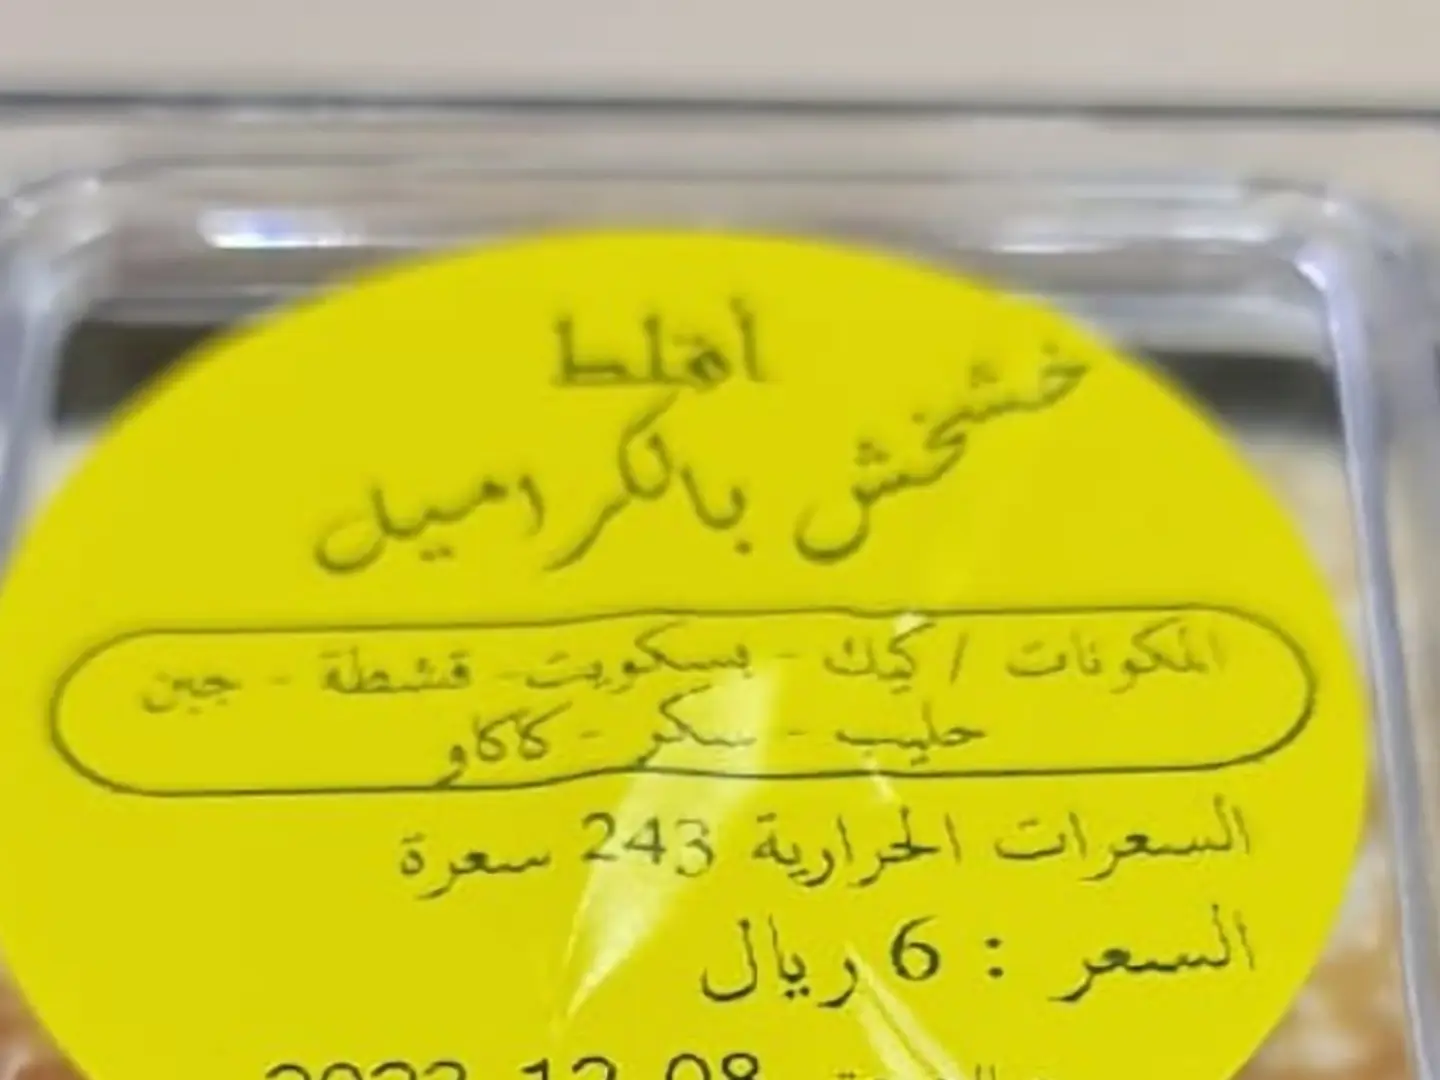 أقلط
خشخش بالكراميل
المكونات / كيك - بسكويت - قشطة - جبن
حليب - سكر - كاكاو
السعرات الحرارية 243 سعرة
السعر : 6 ريال